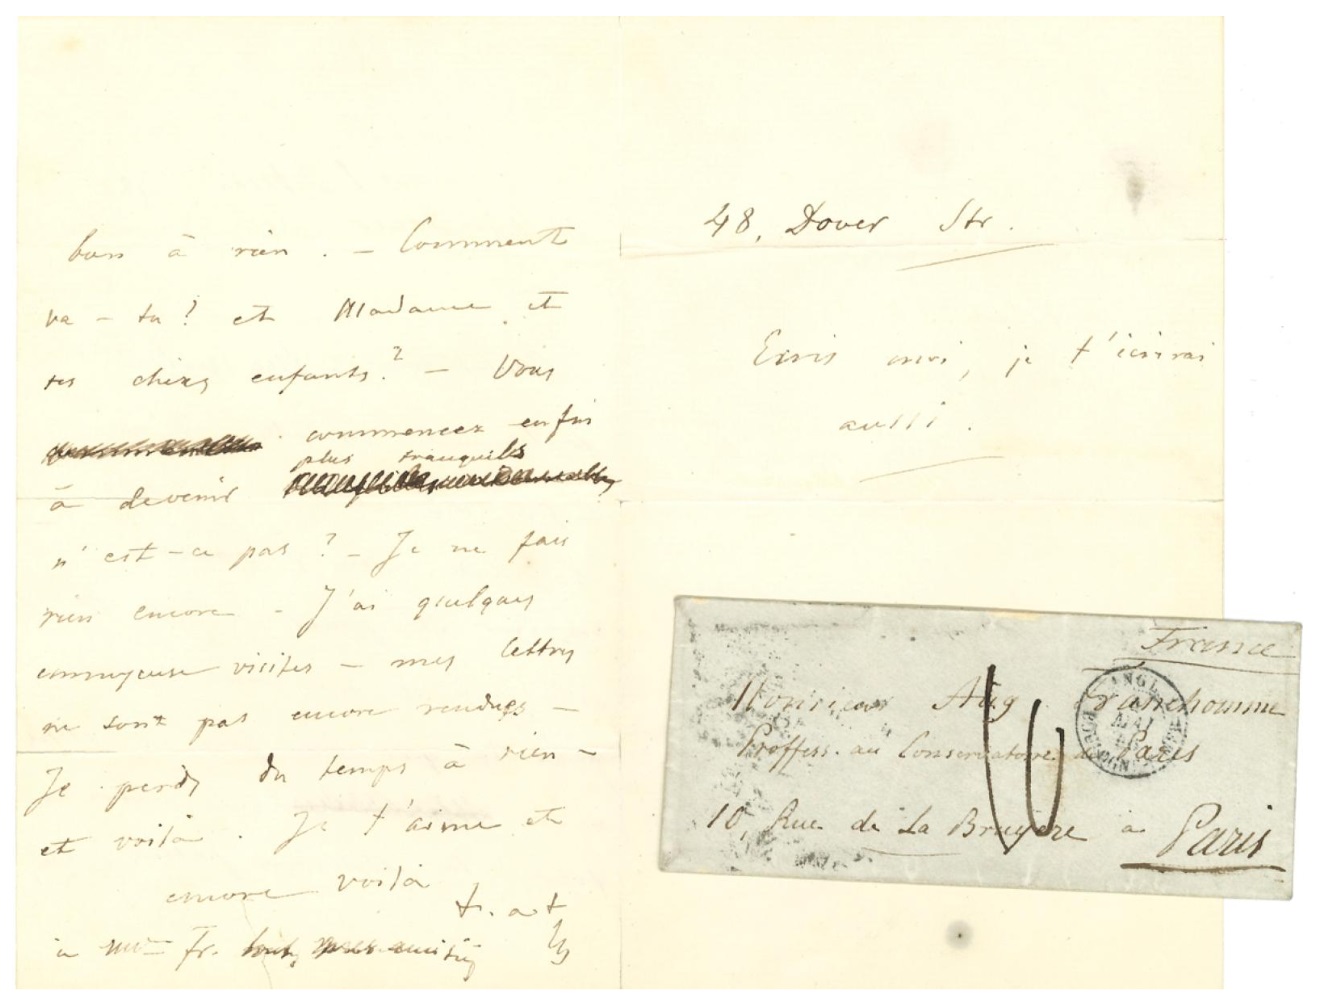 bon à rien. – Comment
va-tu? et Madame et
tes chers enfants? – Vous
commencez enfin
plus tranquils
à devenir
n'est-ce pas? – Je ne fais
rien encore – J'ai quelques
ennuyeuse visites – mes lettres
ne sont pas encore rendues –
Je perds du temps à rien –
et voilà. Je t'aime et
encore voilà
t. a t
à Mme Fr.
48, Dover Str.
Ecris moi, je t'écrirai
aussi.
France
Monsieur Aug Franchomme
Proffess. au Conservatoire de Paris
10 Rue de La Bruyère à Paris
10
ANGL.
MAI
BOULOGNE